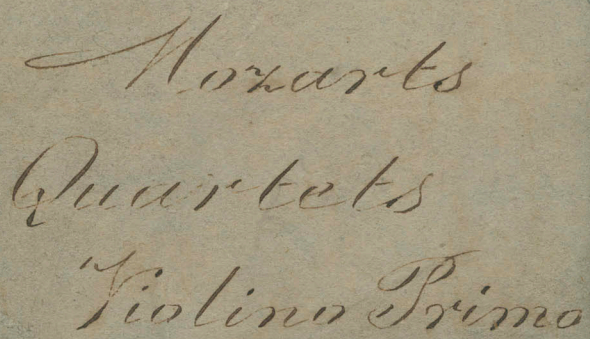 Mozarts
Quartets
Violino Primo